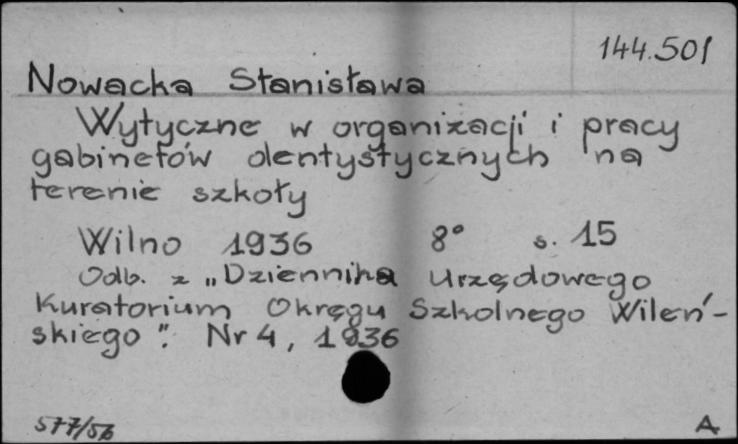 144.501
Nowacka Stanisława
Wytyczne w organizacji i pracy
gabinetów dentystycznych na
terenie szkoły
Wilno 1936 8° s. 15
Odb. z „Dziennika Urzędowego
Kuratorium Okręgu Szkolnego Wileń-
skiego". Nr 4, 1936
577/56 A